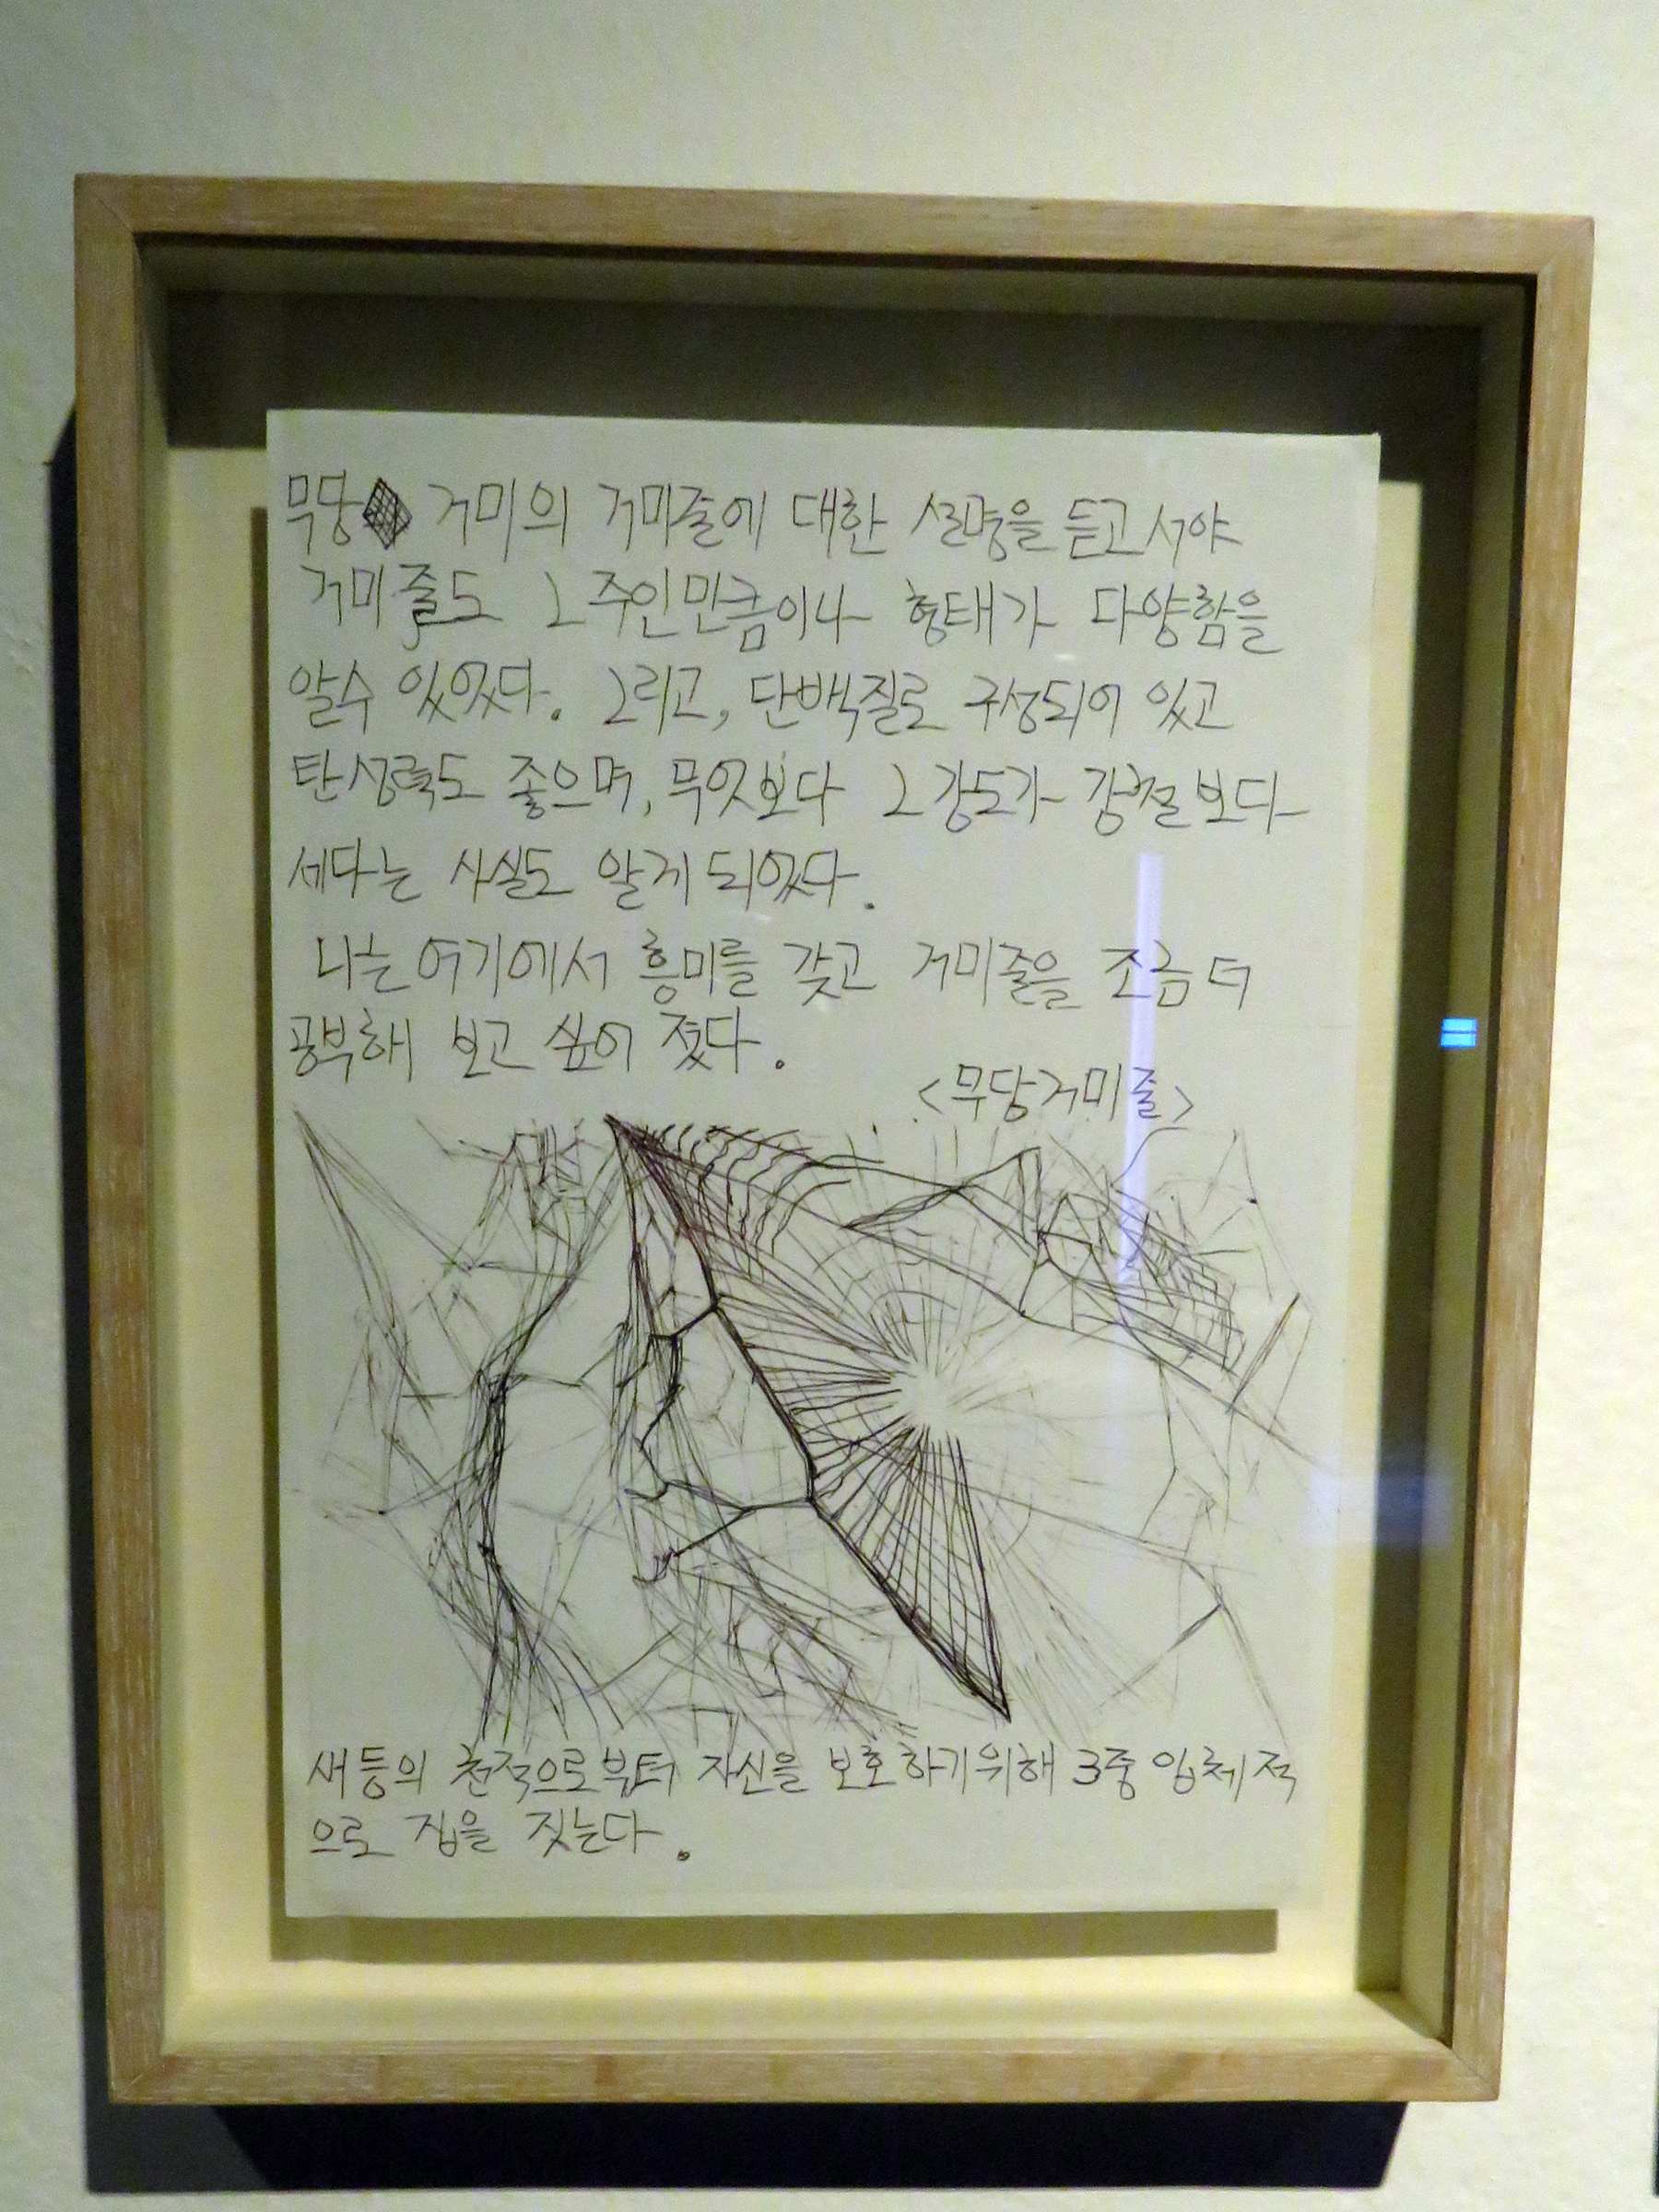 무당 거미의 거미줄에 대한 설명을 듣고서야
거미줄도 그 주인만큼이나 형태가 다양함을
알수 있었다. 그리고, 단백질로 구성되어 있고
탄성력도 좋으며, 무엇보다 그 강도가 강철보다
세다는 사실도 알게 되었다.
나는 여기에서 흥미를 갖고 거미줄을 조금 더
공부해 보고 싶어 졌다.
<무당거미줄>
새등의 천적으로부터 자신을 보호하기위해 3중 입체적
으로 집을 짓는다.